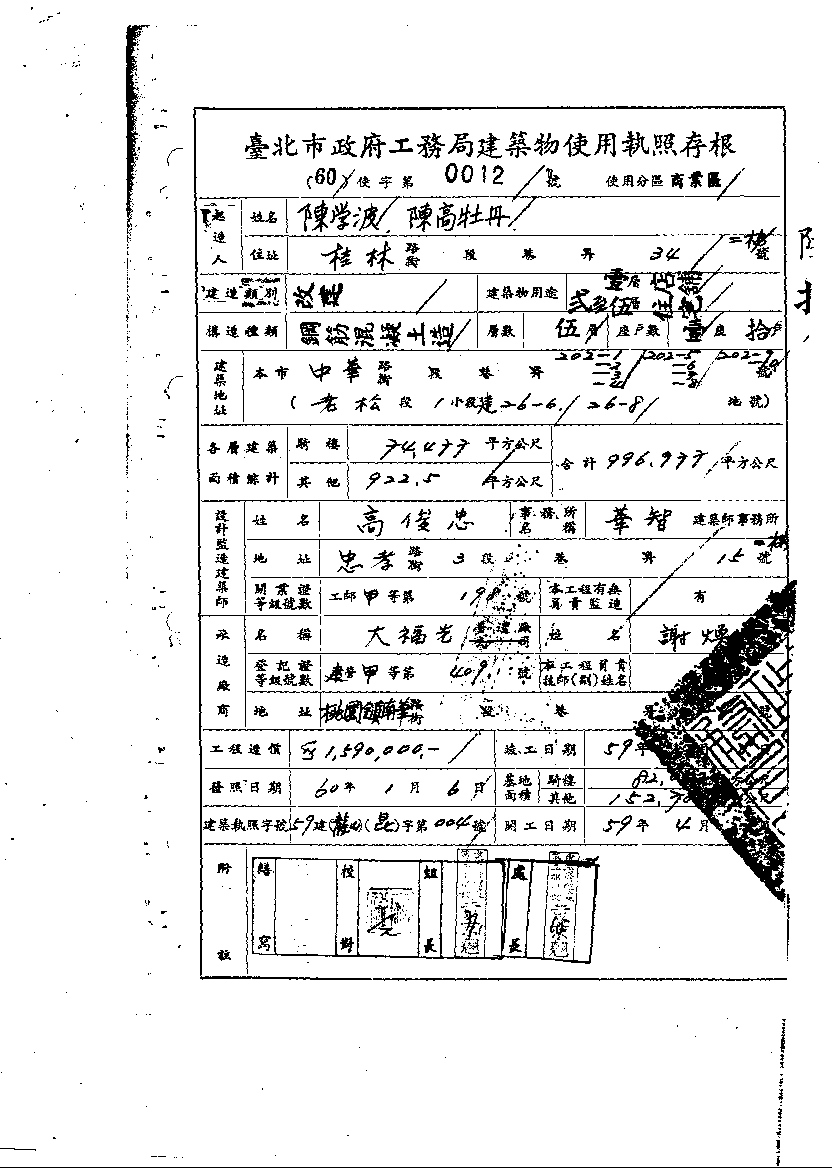 臺北市政府工務局建築物使用執照存根
(60)使字第 0012 號 使用分區 商業區
起造人 姓名 陳学波 陳高牡丹
住址 桂林 路街 段 巷 弄 34 號 二樓
建造類別 改建 建築物用途 壹層店舖
弍至伍層住宅
構造種類 鋼筋混凝土造 層數 伍層 座戶數 壹座 拾戶
建築地址 本市 中華 路街 段 巷 弄 202-1 202-5 202-9 號
(老松段 1 小段建 26-6 26-8 地號)
各層建築面積綜計 騎樓 74.477 平方公尺 合計 996.977 平方公尺
其他 922.5 平方公尺
設計監造建築師 姓名 高俊忠 事務所名稱 華智 建築師事務所
地址 忠孝 路街 3 段 巷 弄 15 號 二樓
開業證等級號數 工師甲等第 198 號 本工程有無負責監造 有
承造廠商 名稱 大福光 營造廠公司 姓名 謝
登記證等級號數 營甲等第 4091 號 本工程負責技師(副)姓名
地址 桃園鎮 路街 段 巷 弄 號
工程造價 1,590,000.- 竣工日期 59年
發照日期 60年 1月 6日 基地面積 騎樓 82.
其他 152.
建築執照字號 59建( )( )字第004號 開工日期 59年 4月
附註 繕寫 校對 組長 處長